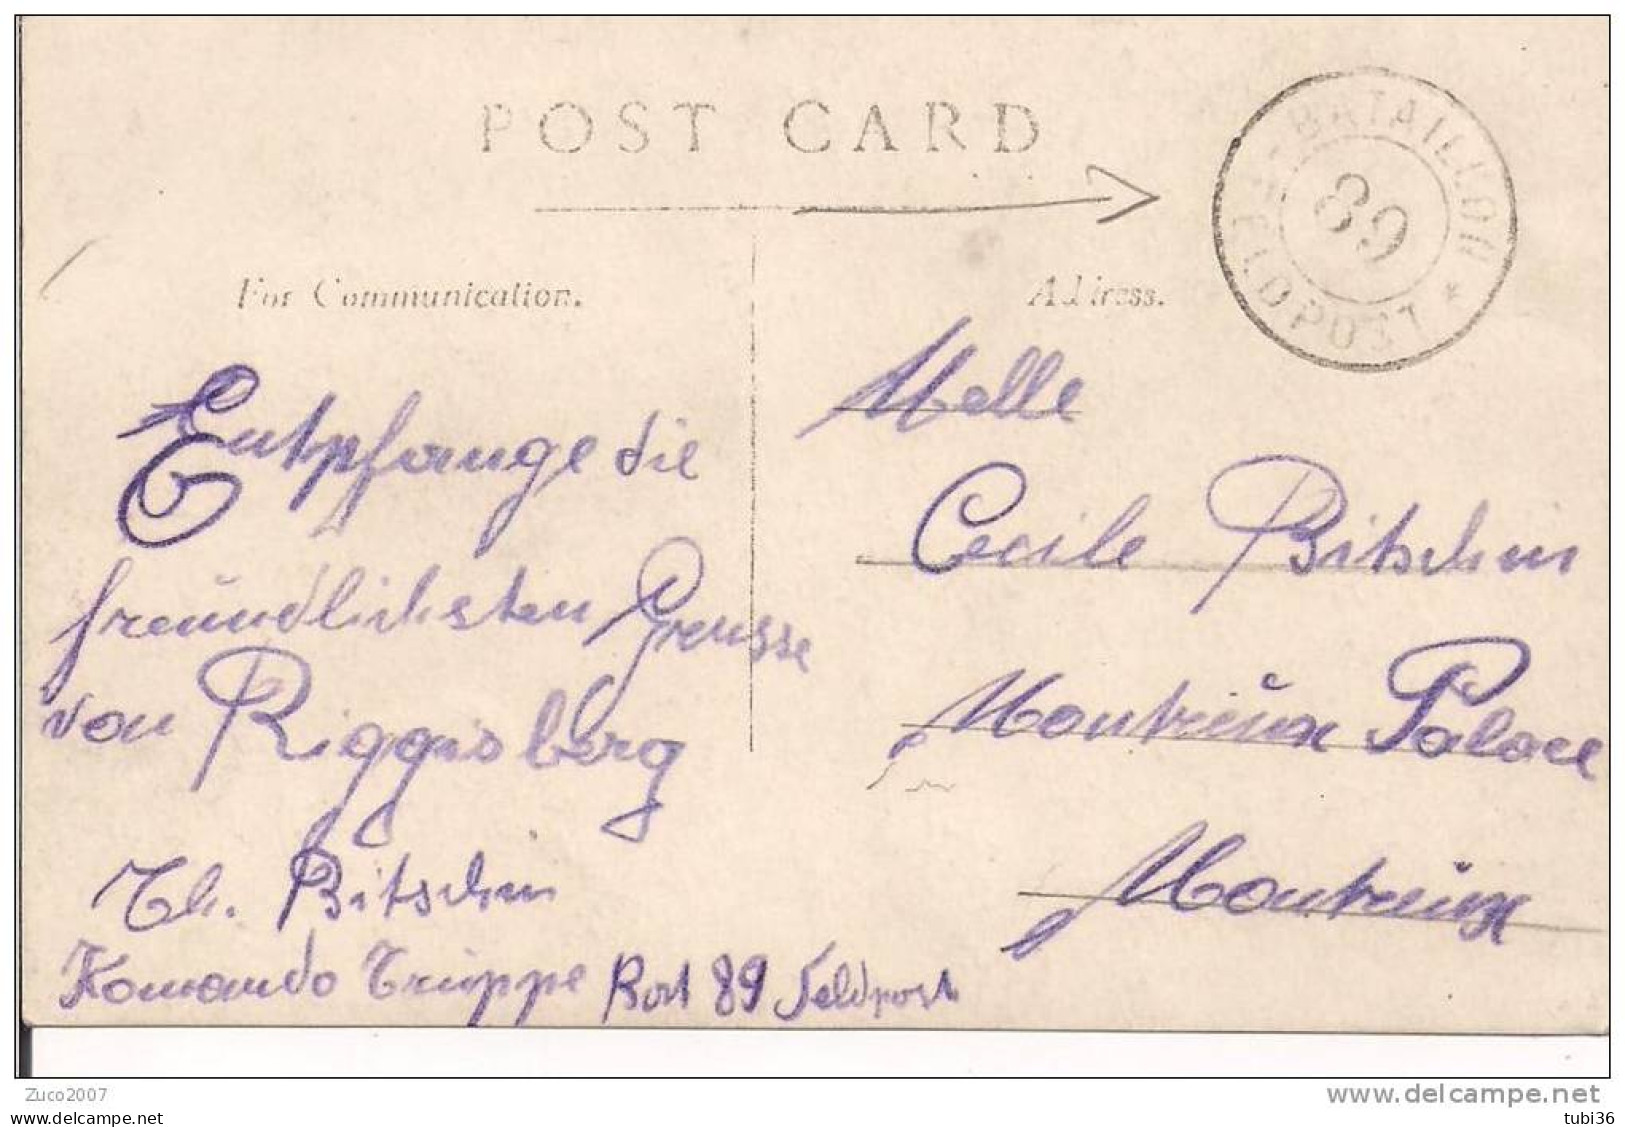 POST CARD
BATAILLON
89
FELDPOST *
For Communication.
Address.
Entpfange die
freundlichsten Grüsse
von Riggisberg
Th. Bitschin
Komando Truppe Bat 89 Feldpost
Melle
Cecile Bitschin
Montreux Palace
Montreux
Zuco2007
www.delcampe.net
tubi36